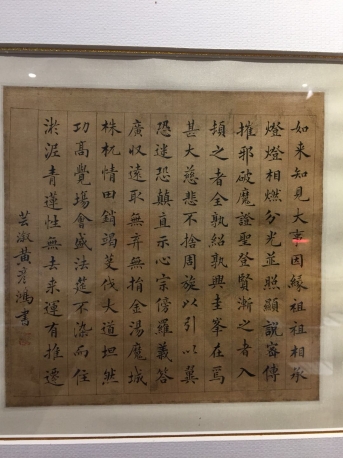 如来知見大事因緣祖祖相承
燈燈相燃分光並照顯說密傳
摧邪破魔證聖登賢漸之者入
頓之者全孰紹孰興圭峯在焉
甚大慈悲不捨周旋以引以翼
恐迷恐顛直示心宗傍羅義筌
廣収遠取無弃無捐金湯魔城
株杌情田銷竭芟伐大道坦然
功高覺場會盛法筵不染而住
淤泥青蓮性無去來運有推遷
芸溆黃彦鴻書